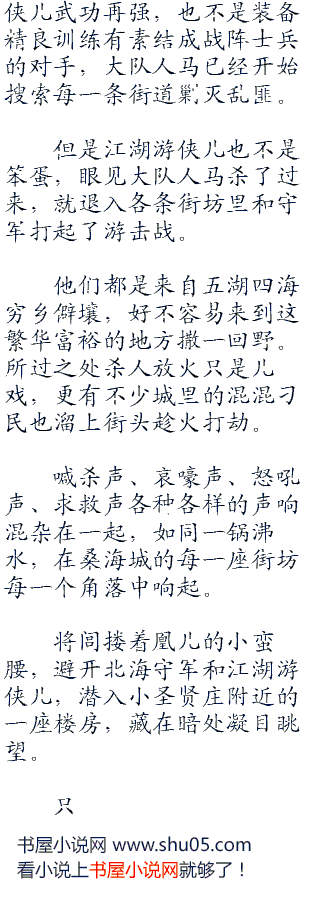 侠儿武功再强，也不是装备
精良训练有素结成战阵士兵
的对手，大队人马已经开始
搜索每一条街道剿灭乱匪。
但是江湖游侠儿也不是
笨蛋，眼见大队人马杀了过
来，就退入各条街坊里和守
军打起了游击战。
他们都是来自五湖四海
穷乡僻壤，好不容易来到这
繁华富裕的地方撒一回野。
所过之处杀人放火只是儿
戏，更有不少城里的混混刁
民也溜上街头趁火打劫。
喊杀声、哀嚎声、怒吼
声、求救声各种各样的声响
混杂在一起，如同一锅沸
水，在桑海城的每一座街坊
每一个角落中响起。
将闾搂着凰儿的小蛮
腰，避开北海守军和江湖游
侠儿，潜入小圣贤庄附近的
一座楼房，藏在暗处凝目眺
望。
只
书屋小说网 www.shu05.com
看小说上书屋小说网就够了！